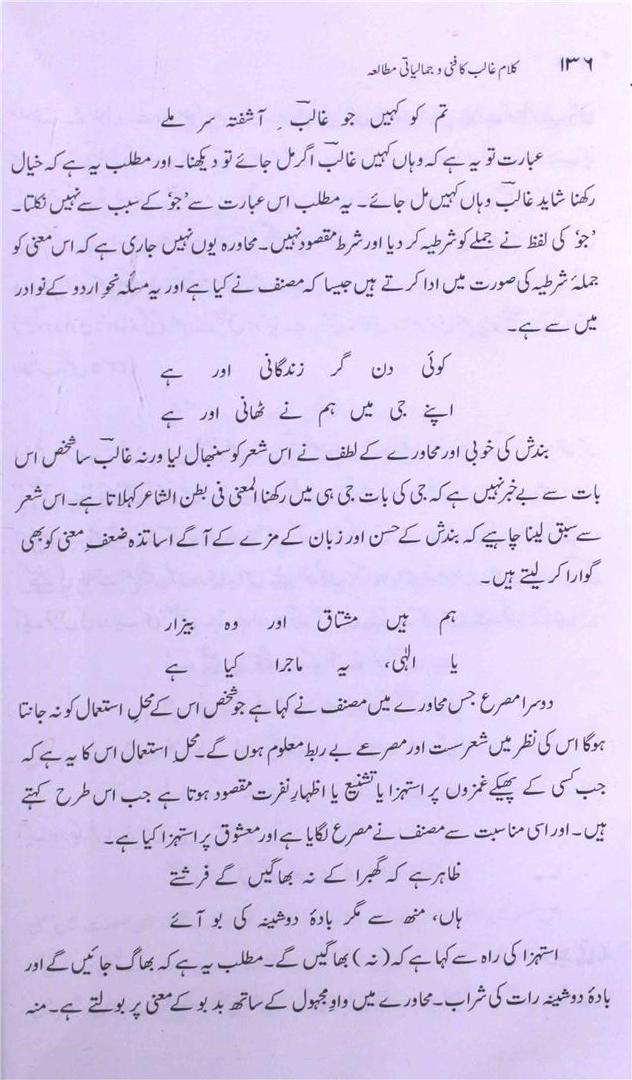 ۱۳۶ کلام غالب کا فنی و جمالیاتی مطالعہ
تم کو کہیں جو غالبؔ ِ آشفتہ سر ملے
عبارت تو یہ ہے کہ وہاں کہیں غالبؔ اگر مل جائے تو دیکھنا۔ اور مطلب یہ ہے کہ خیال
رکھنا شاید غالبؔ وہاں کہیں مل جائے۔ یہ مطلب اس عبارت سے ’جو‘ کے سبب سے نہیں نکلتا۔
’جو‘ کی لفظ نے جملے کو شرطیہ کر دیا اور شرط مقصود نہیں۔ محاورہ یوں نہیں جاری ہے کہ اس معنی کو
جملۂ شرطیہ کی صورت میں ادا کرتے ہیں جیسا کہ مصنف نے کیا ہے اور یہ مسئلہ نحوِ اردو کے نوادر
میں سے ہے۔
کوئی دن گر زندگانی اور ہے
اپنے جی میں ہم نے ٹھانی اور ہے
بندش کی خوبی اور محاورے کے لطف نے اس شعر کو سنبھال لیا ورنہ غالبؔ سا شخص اس
بات سے بے خبر نہیں ہے کہ جی کی بات جی ہی میں رکھنا المعنی فی بطن الشاعر کہلاتا ہے۔ اس شعر
سے سبق لینا چاہیے کہ بندش کے حسن اور زبان کے مزے کے آگے اساتذہ ضعفِ معنی کو بھی
گوارا کر لیتے ہیں۔
ہم ہیں مشتاق اور وہ بیزار
یا الٰہی، یہ ماجرا کیا ہے
دوسرا مصرع جس محاورے میں مصنف نے کہا ہے جو شخص اس کے محلِ استعمال کو نہ جانتا
ہوگا اس کی نظر میں شعر سست اور مصرعے بے ربط معلوم ہوں گے۔ محلِ استعمال اس کا یہ ہے کہ
جب کسی کے پھیکے غمزوں پر استہزا یا تشنیع یا اظہارِ نفرت مقصود ہوتا ہے جب اس طرح کہتے
ہیں۔ اور اسی مناسبت سے مصنف نے مصرع لگایا ہے اور معشوق پر استہزا کیا ہے۔
ظاہر ہے کہ گھبرا کے نہ بھاگیں گے فرشتے
ہاں، منھ سے مگر بادۂ دوشینہ کی بو آئے
استہزا کی راہ سے کہا ہے کہ (نہ) بھاگیں گے۔ مطلب یہ ہے کہ بھاگ جائیں گے اور
بادۂ دوشینہ رات کی شراب۔ محاورے میں واوِ مجہول کے ساتھ بدبو کے معنی پر بولتے ہے۔ منہ